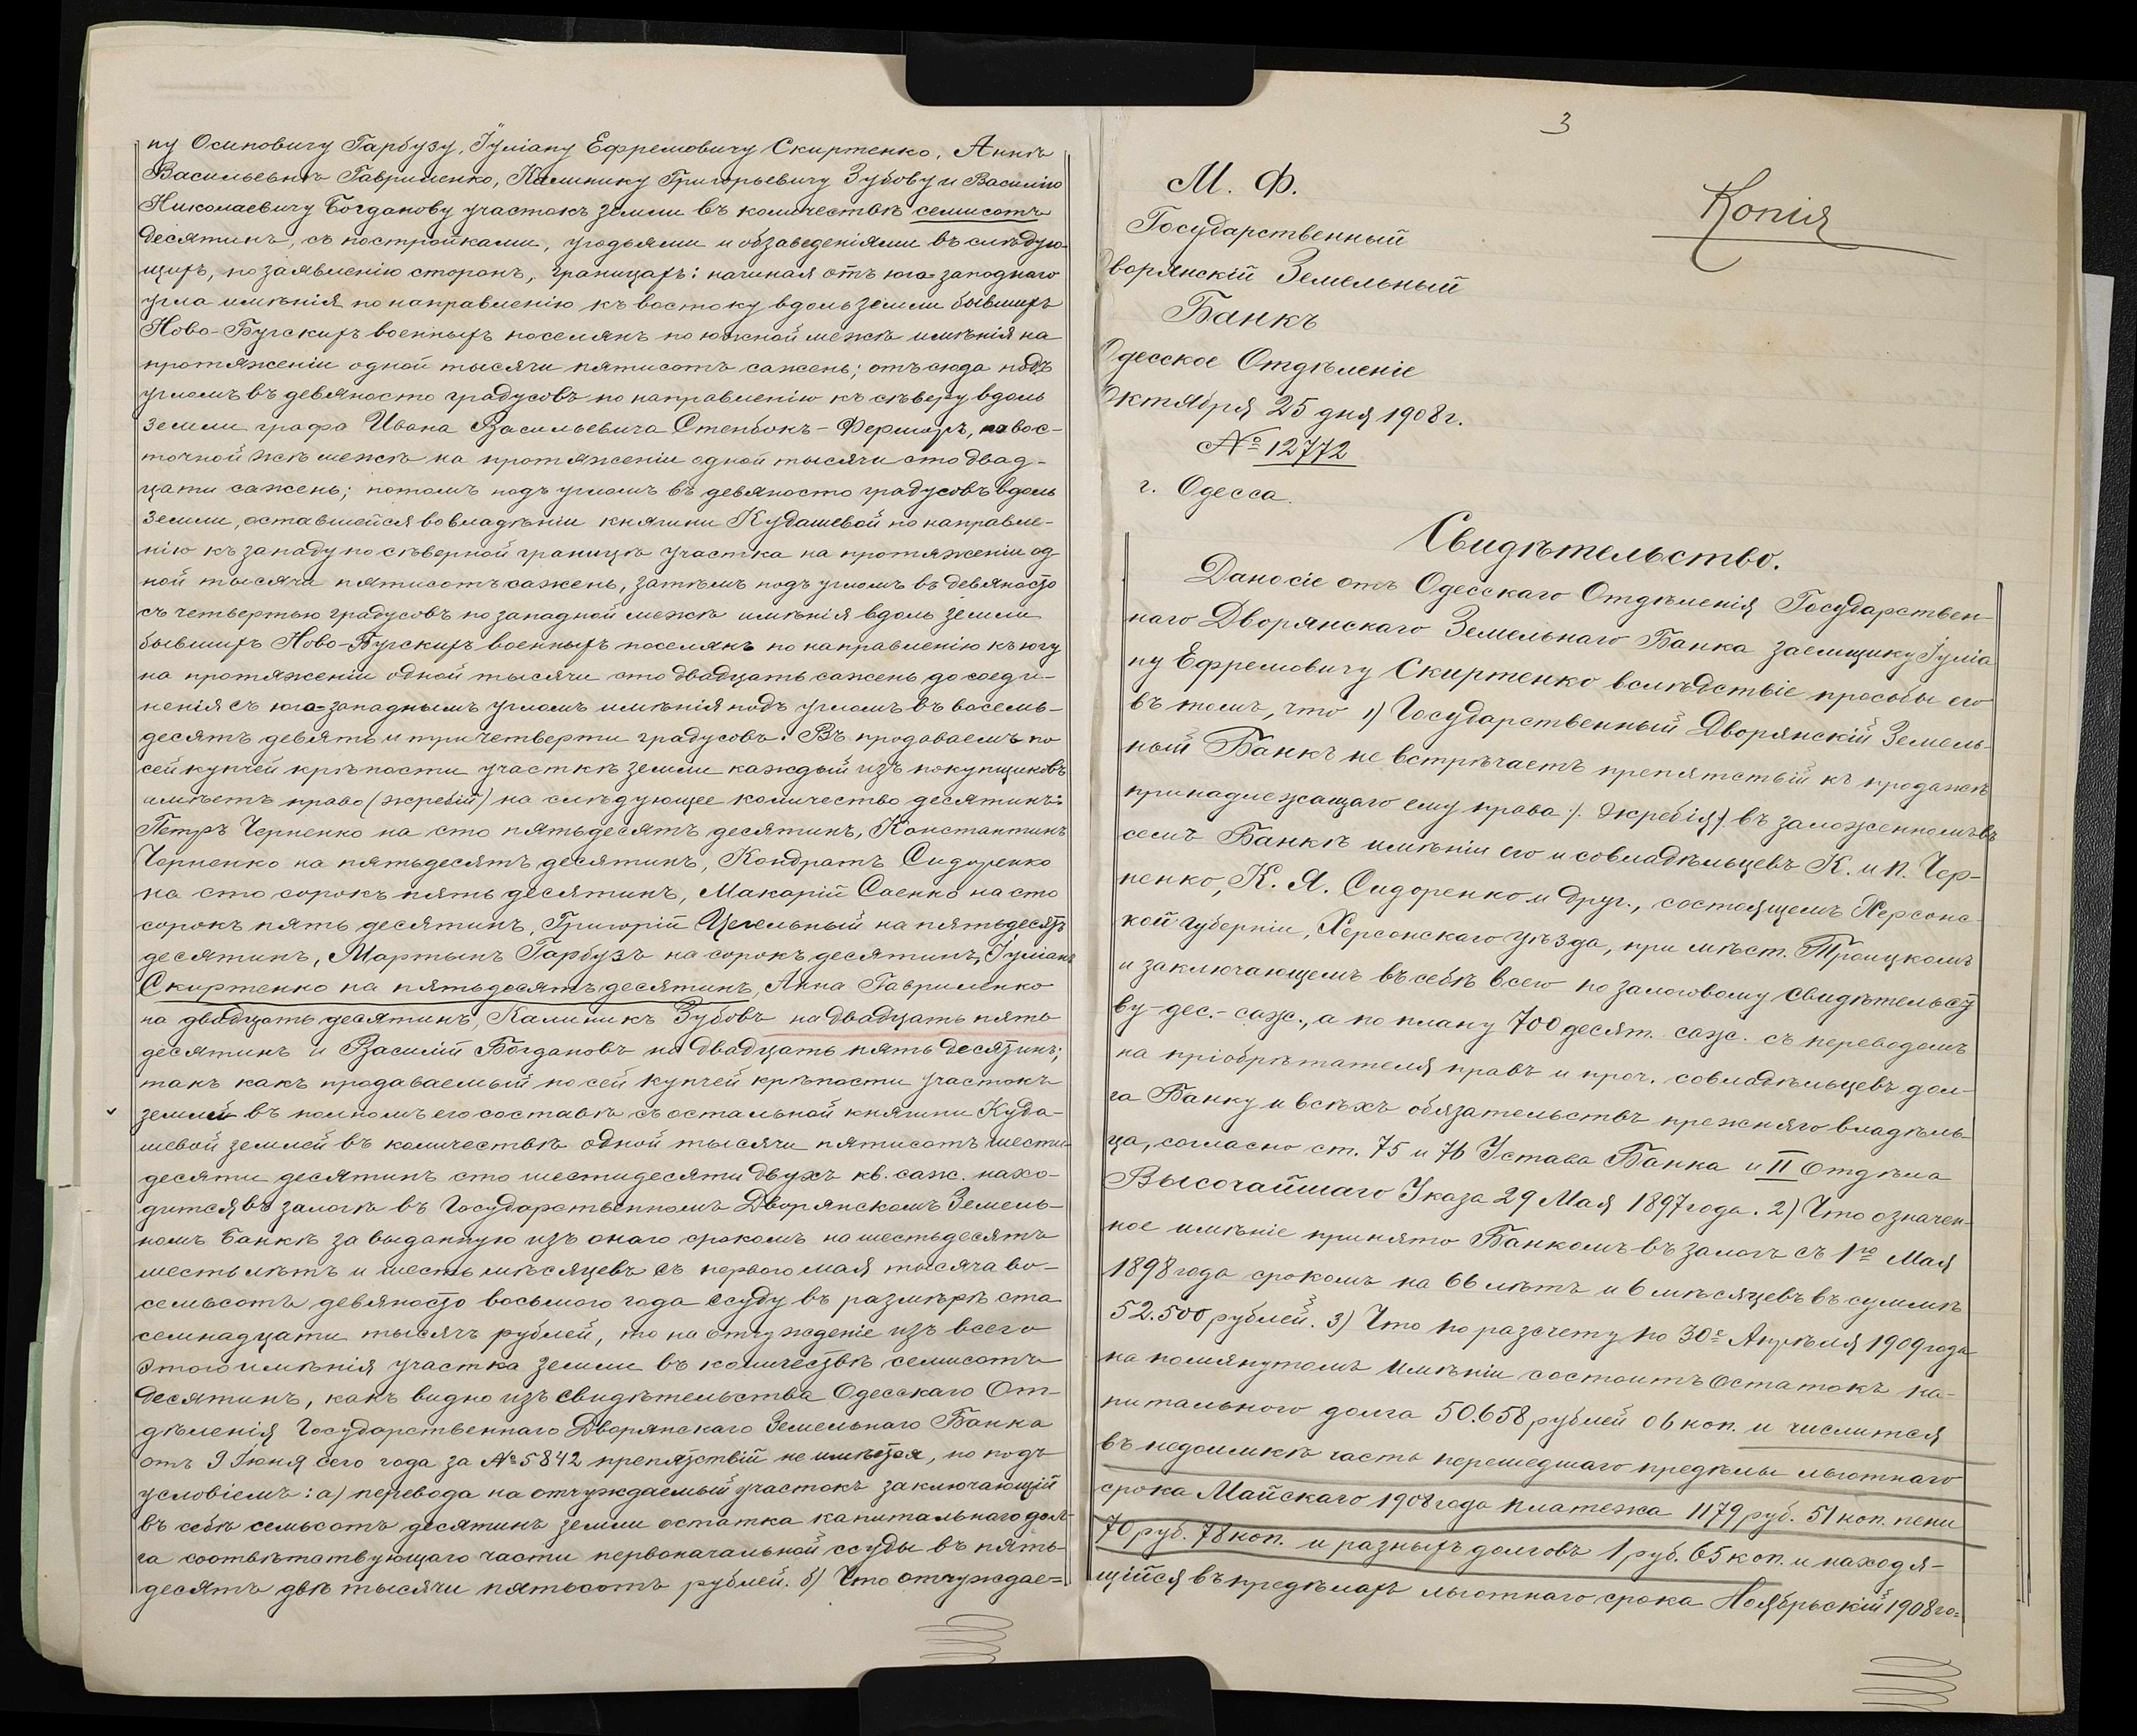 ну Осиповичу Гарбузу, Іуліану Ефремовичу Скиртенко, Аннѣ
Васильевнѣ Гавриленко, Калинику Григорьевичу Зубову и Василію
Николаевичу Богданову участокъ земли въ количествѣ семисотъ
десятинъ, съ постройками, угодьями и обзаведеніями въ слѣдую-
щихъ, по заявленію сторонъ, границахъ: начиная отъ юга-западнаго
угла имѣнія по направленію къ востоку вдоль земли бывшихъ
Ново-Бугскихъ военныхъ поселянъ по южной межѣ имѣнія на
протяженіи одной тысячи пятисотъ сажень; отъ сюда подъ
угломъ въ девяносто градусовъ по направленію къ сѣверу вдоль
земли графа Ивана Васильевича Стенбокъ-Ферморъ, по вос-
точной же межѣ на протяженіи одной тысячи сто двад-
цати сажень; потомъ подъ угломъ въ девяносто градусовъ вдоль
земли, оставшейся во владѣніи княгини Кудашевой по направле-
нію къ западу по сѣверной границѣ участка на протяженіи од-
ной тысячи пятисотъ сажень, затѣмъ подъ угломъ въ девяносто
съ четвертью градусовъ по западной межѣ имѣнія вдоль земли
бывшихъ Ново-Бугскихъ военныхъ поселянъ по направленію къ югу
на протяженіи одной тысячи сто двадцать сажень до соеди-
ненія съ юга-западнымъ угломъ имѣнія подъ угломъ въ восемь-
десятъ девять и три четверти градусовъ. Въ продаваемъ по
сей купчей крѣпости участкѣ земли каждый изъ покупщиковъ
имѣетъ право (жребій) на слѣдующее количество десятинъ:
Петръ Черненко на сто пятьдесятъ десятинъ, Константинъ
Черненко на пятьдесятъ десятинъ, Кондратъ Сидоренко
на сто сорокъ пять десятинъ, Макарій Саенко на сто
сорокъ пять десятинъ, Григорій Цегельный на пятьдесятъ
десятинъ, Мартынъ Гарбузъ на сорокъ десятинъ, Іуліанъ
Скиртенко на пятьдесятъ десятинъ, Анна Гавриленко
на двадцать десятинъ, Калиникъ Зубовъ на двадцать пять
десятинъ и Василій Богдановъ на двадцать пять десятинъ;
такъ какъ продаваемый по сей купчей крѣпости участокъ
землей въ полномъ его составѣ съ остальной княгини Куда-
шевой землей въ количествѣ одной тысячи пятисотъ шести-
десяти десятинъ сто шестидесяти двухъ кв. саж. нахо-
дится въ залогѣ въ Государственномъ Дворянскомъ Земель-
номъ Банкѣ за выданную изъ онаго срокомъ на шестьдесятъ
шесть лѣтъ и шесть мѣсяцевъ съ перваго мая тысяча во-
семьсотъ девяносто восьмого года ссуду въ размѣрѣ ста
семнадцати тысячъ рублей, то на отчужденіе изъ всего
этого имѣнія участка земли въ количествѣ семисотъ
десятинъ, какъ видно изъ свидѣтельства Одесскаго От-
дѣленія Государственнаго Дворянскаго Земельнаго Банка
отъ 9 Іюня сего года за № 5842 препятствій не имѣется, но подъ
условіемъ: а) перевода на отчуждаемый участокъ заключающій
въ себѣ семьсотъ десятинъ земли остатка капитальнаго дол-
га соотвѣтствующаго части первоначальной ссуды въ пять-
десятъ двѣ тысячи пятьсотъ рублей. б) Что отчуждае-
3
Копія
М. Ф.
Государственный
Дворянскій Земельный
Банкъ
Одесское Отдѣленіе
Октября 25 дня 1908 г.
№ 12772
г. Одесса.
Свидѣтельство.
Дано сіе отъ Одесскаго Отдѣленія Государствен-
наго Дворянскаго Земельнаго Банка заемщику Іуліа
ну Ефремовичу Скиртенко вслѣдствіе просьбы его
въ томъ, что 1) Государственный Дворянскій Земель-
ный Банкъ не встрѣчаетъ препятствій къ продажѣ
принадлежащаго ему права /. жребія ./ въ заложенномъ въ
семъ Банкѣ имѣніи его и совладѣльцевъ К. и П. Чер-
ненко, К. Я. Сидоренко и друг., состоящемъ Херсонс-
кой губерніи, Херсонскаго уѣзда, при мѣст. Троицкомъ
и заключающемъ въ себѣ всего по залоговому свидѣтельст
ву-дес.-саж., а по плану 700 десят. саж. съ переводомъ
на пріобрѣтателя правъ и проч. совладѣльцевъ дол-
га Банку и всѣхъ обязательствъ прежняго владѣль-
ца, согласно ст. 75 и 76 Устава Банка и II Отдѣла
Высочайшаго Указа 29 Мая 1897 года. 2) Что означен-
ное имѣніе принято Банкомъ въ залогъ съ 1го Мая
1898 года срокомъ на 66 лѣтъ и 6 мѣсяцевъ въ суммѣ
52.500 рублей. 3) Что по разсчету по 30е Апрѣля 1909 года
на помянутомъ имѣніи состоитъ остатокъ ка-
питальнаго долга 50.658 рублей 06 коп. и числится
въ недоимкѣ часть перешедшаго предѣлы льготнаго
срока Майскаго 1908 года платежа 1179 руб. 51 коп. пени
70 руб. 78 коп. и разныхъ долговъ 1 руб. 65 коп. и находя-
щійся въ предѣлахъ льготнаго срока Ноябрьскій 1908 го-